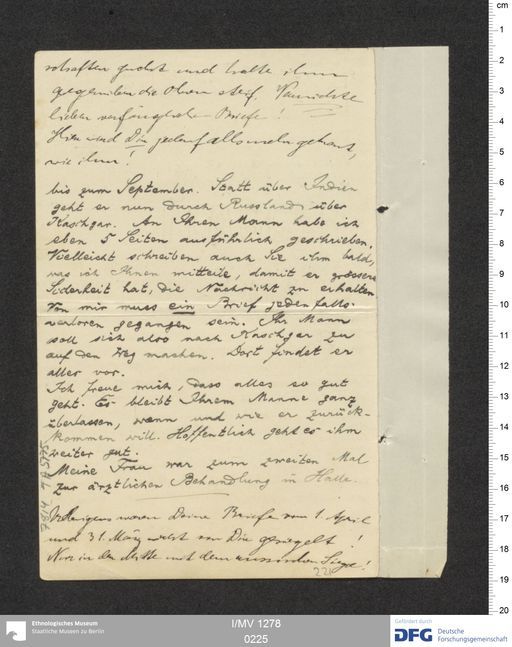 und halte ihm
gegenüber die Ohren steif.
lieben Briefe!
Hier und Du jedenfalls mehr gehört,
wie ihm!
bis zum September. Statt über Indien
geht er nun durch Russland über
Kaschgar. An Ihren Mann habe ich
eben 5 Seiten ausführlich geschrieben.
Vielleicht schreiben auch Sie ihm bald,
was ich Ihnen mitteile, damit er grössere
Sicherheit hat, die Nachricht zu erhalten
Von mir muss ein Brief jedenfalls
verloren gegangen sein. Ihr Mann
soll sich also nach Kaschgar zu
auf den Weg machen. Dort findet er
alles vor.
Ich freue mich, dass alles so gut
geht. Es bleibt Ihrem Manne ganz
überlassen, wann und wie er zurück-
kommen will. Hoffentlich geht es ihm
weiter gut.
Meine Frau war zum zweiten Mal
zur ärztlichen Behandlung in Halle.
Übrigens waren Deine Briefe vom 1. April
und 31. März von Dir gesiegelt!
Nur in der Mitte mit dem russischen Siegel!
221
cm
1
2
3
4
5
6
7
8
9
10
11
12
13
14
15
16
17
18
19
20
Ethnologisches Museum
Staatliche Museen zu Berlin
I/MV 1278
0225
Gefördert durch
DFG
Deutsche
Forschungsgemeinschaft